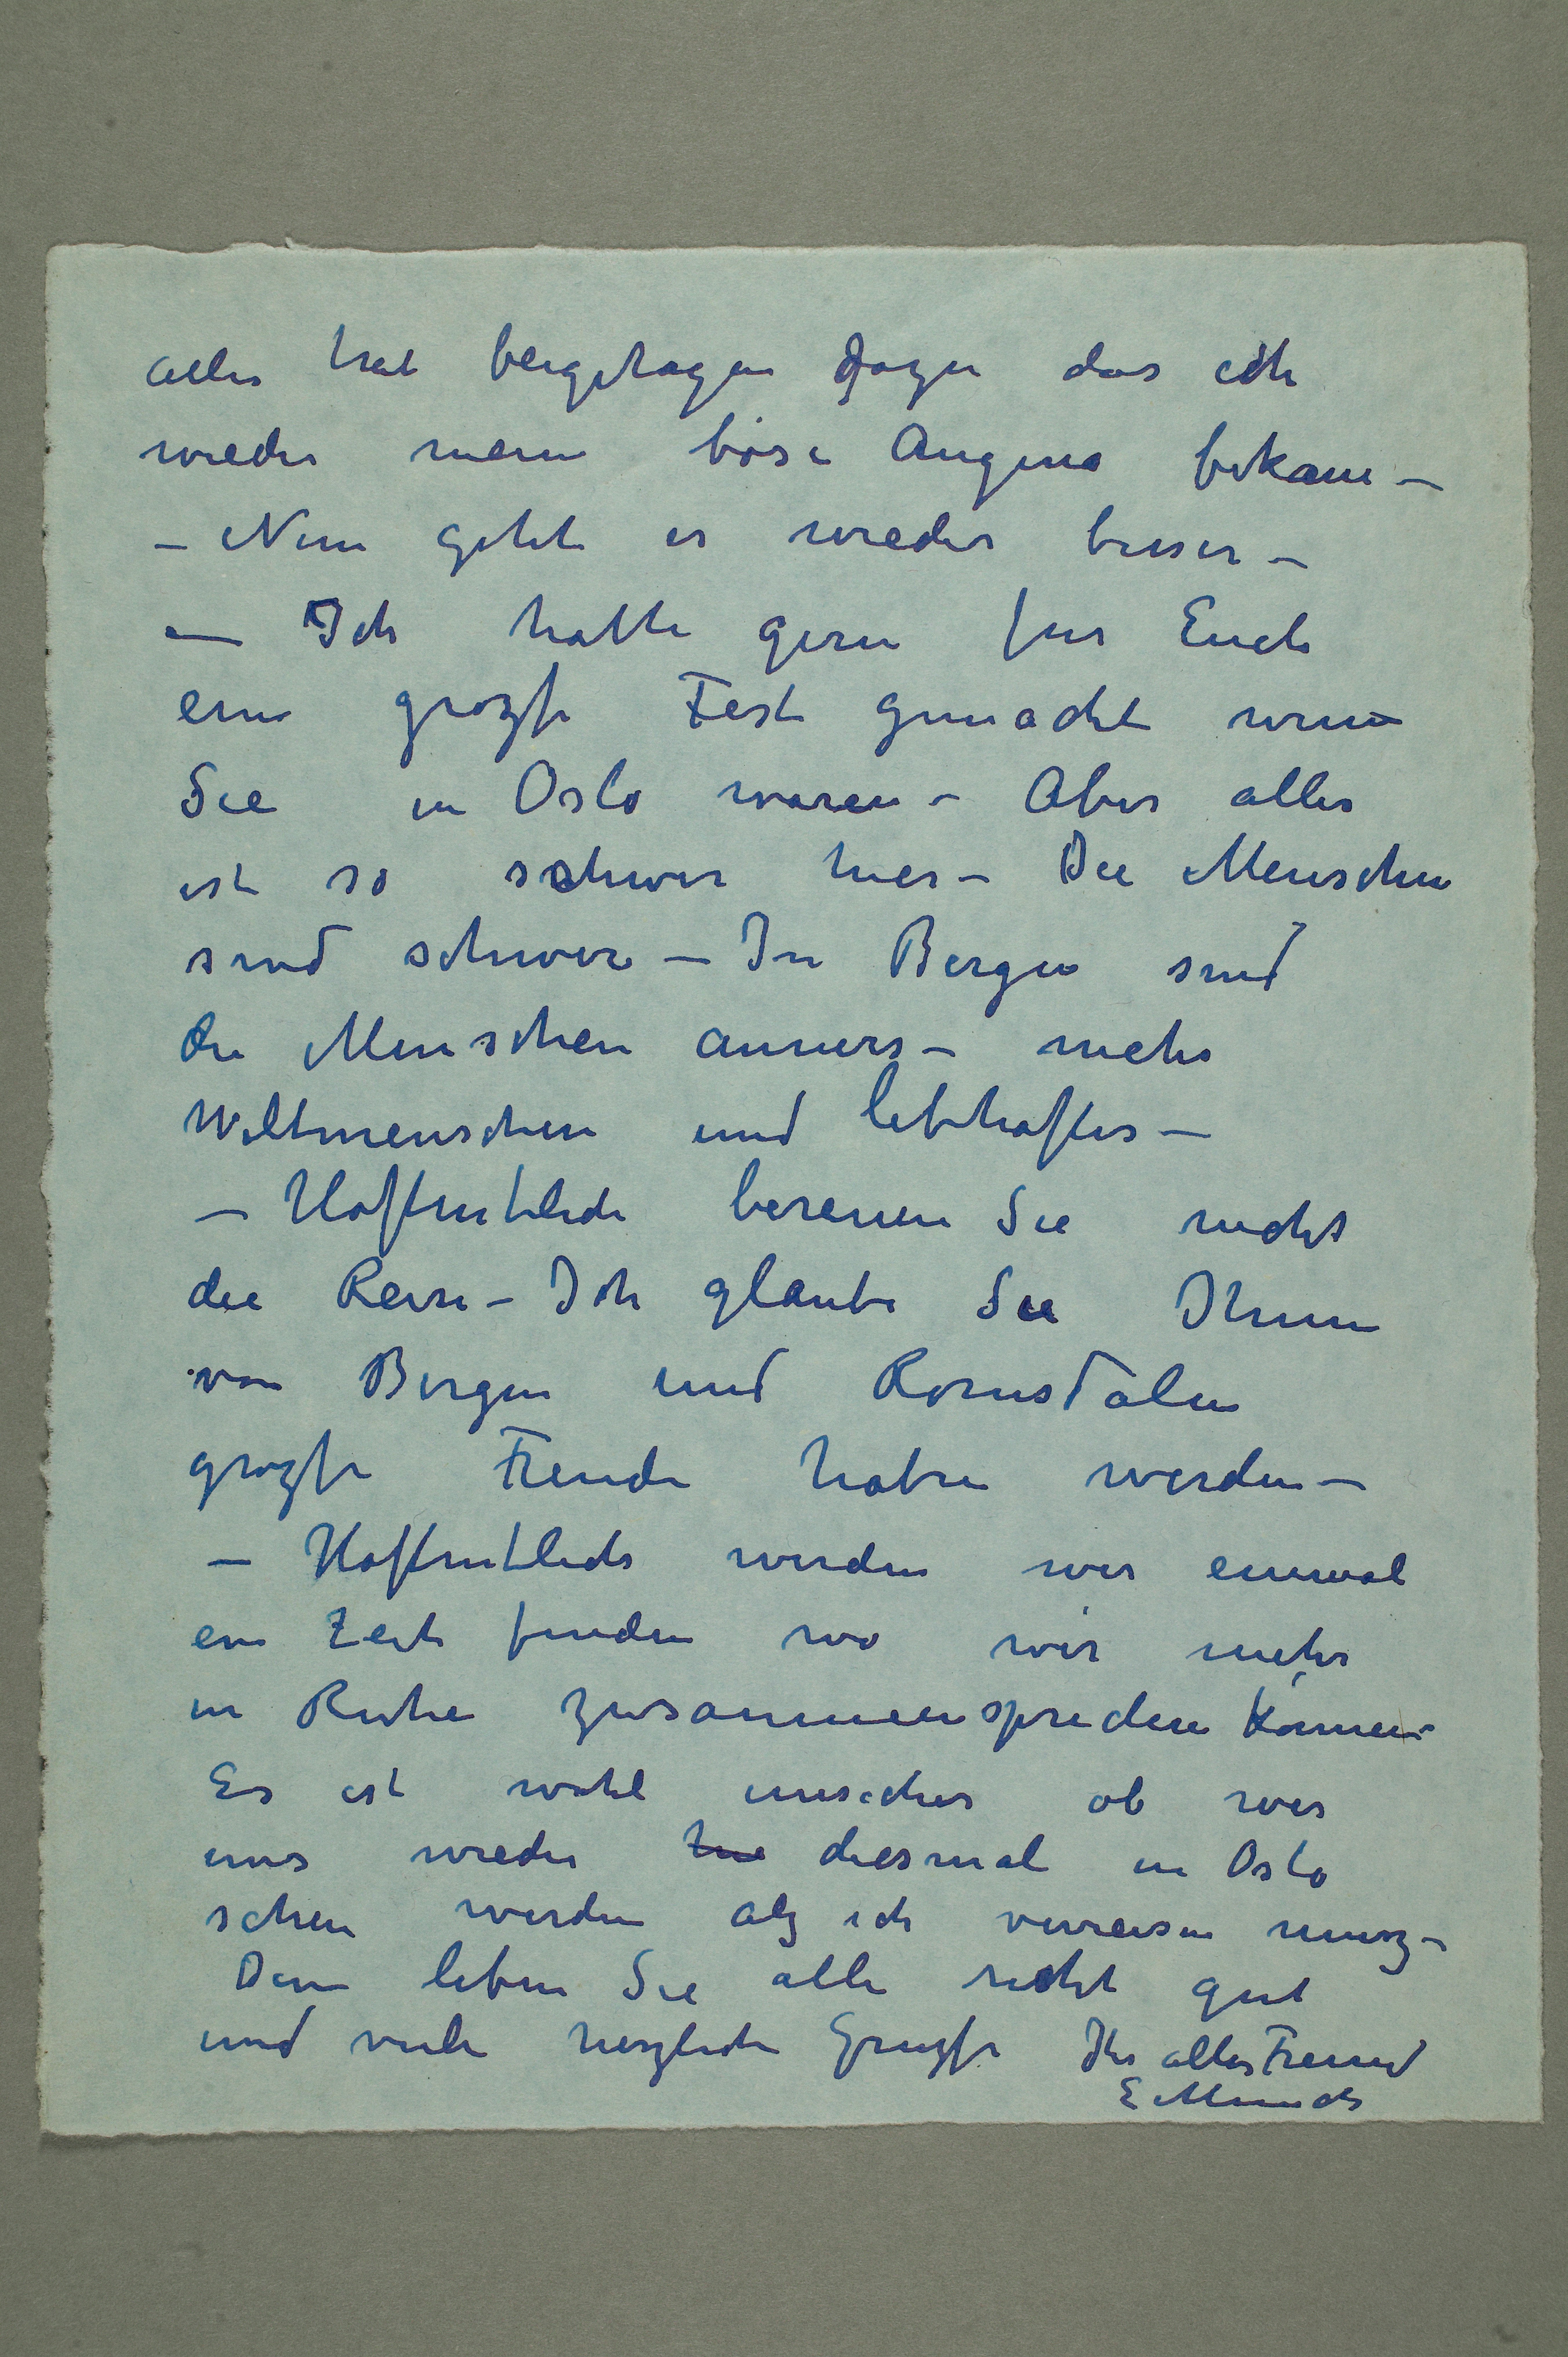 alles hat beigetragen dazu das ich
wieder meine böse Angina bekam –
– Nun geht es wieder besser –
– Ich hatte gern für Euch
ein grozse Fest gemacht wenn
Sie in Oslo waren – Aber alles
ist so schwer hier – Die Menschen
sind schwer – In Bergen sind
die Menschen anners – mehr
Weltmenschen und lebhafter –
– Hoffentlich bereuen Sie nicht
die Reise – Ich glaube Sie Ihnen
von Bergen und Romsdalen
grozse Freude haben werden –
– Hoffentlich werden wir einmal
ein Zeit finden wo wir mehr
in Ruhe zusammensprechen können –
Es ist wohl unsicher ob wir
uns wieder diesmal in Oslo
sehen werden alz ich verreisen musz –
Denn leben Sie alle recht gut
und viele herzliche Gruzse Ihr alter Freund
E Munch